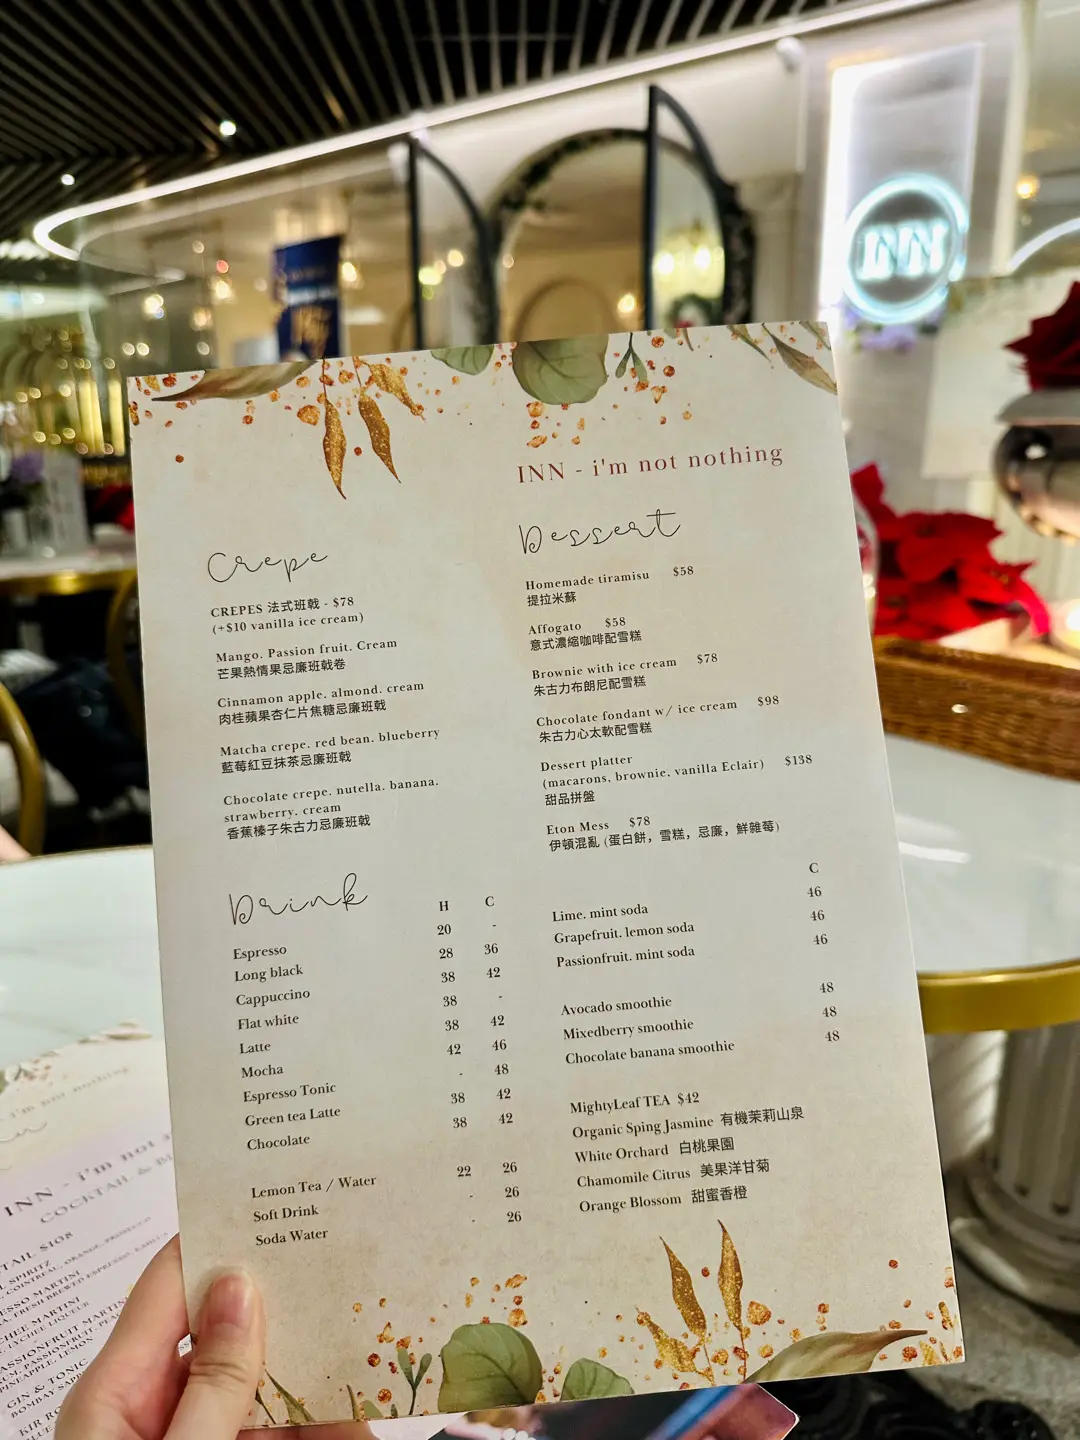 INN
INN - i'm not nothing
Crepe
CREPES 法式班戟 - $78
(+$10 vanilla ice cream)
Mango. Passion fruit. Cream
芒果熱情果忌廉班戟卷
Cinnamon apple. almond. cream
肉桂蘋果杏仁片焦糖忌廉班戟
Matcha crepe. red bean. blueberry
藍莓紅豆抹茶忌廉班戟
Chocolate crepe. nutella. banana.
strawberry. cream
香蕉榛子朱古力忌廉班戟
Dessert
Homemade tiramisu $58
提拉米蘇
Affogato $58
意式濃縮咖啡配雪糕
Brownie with ice cream $78
朱古力布朗尼配雪糕
Chocolate fondant w/ ice cream $98
朱古力心太軟配雪糕
Dessert platter
(macarons, brownie, vanilla Eclair) $138
甜品拼盤
Eton Mess $78
伊頓混亂 (蛋白餅，雪糕，忌廉，鮮雜莓)
Drink
H C
Espresso 20 -
Long black 28 36
Cappuccino 38 42
Flat white 38 -
Latte 38 42
Mocha 42 46
Espresso Tonic - 48
Green tea Latte 38 42
Chocolate 38 42
Lemon Tea / Water 22 26
Soft Drink - 26
Soda Water - 26
C
Lime. mint soda 46
Grapefruit. lemon soda 46
Passionfruit. mint soda 46
Avocado smoothie 48
Mixedberry smoothie 48
Chocolate banana smoothie 48
MightyLeaf TEA $42
Organic Sping Jasmine 有機茉莉山泉
White Orchard 白桃果園
Chamomile Citrus 美果洋甘菊
Orange Blossom 甜蜜香橙
i'm not nothing
INN - i'm not
COCKTAIL &
TAIL $108
SPIRITZ
COINTREAU, ORANGE, PROSECCO
ESSO MARTINI
FRESH BREWED ESPRESSO, KAHLUA
CHEE MARTINI
LYCHEE LIQUEUR
PASSIONFRUIT MARTINI
PASSIONFRUIT
PINEAPPLE, LEMON
GIN & TONIC
BOMBAY
KIR